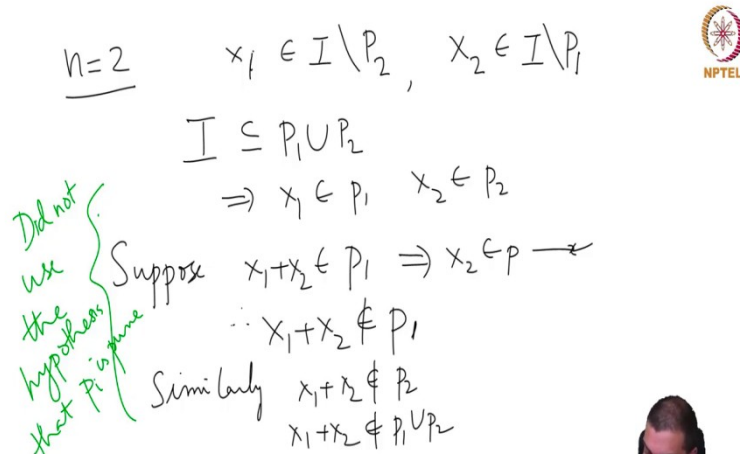 n=2 x₁ ∈ I\P₂, x₂ ∈ I\P₁
NPTEL
I ⊆ P₁∪P₂
⇒ x₁ ∈ P₁ x₂ ∈ P₂
Did not
use
the
hypothesis
that Pi is prime
Suppose x₁+x₂ ∈ P₁ ⇒ x₂ ∈ P
∴ x₁+x₂ ∉ P₁
Similarly x₁+x₂ ∉ P₂
x₁+x₂ ∉ P₁∪P₂